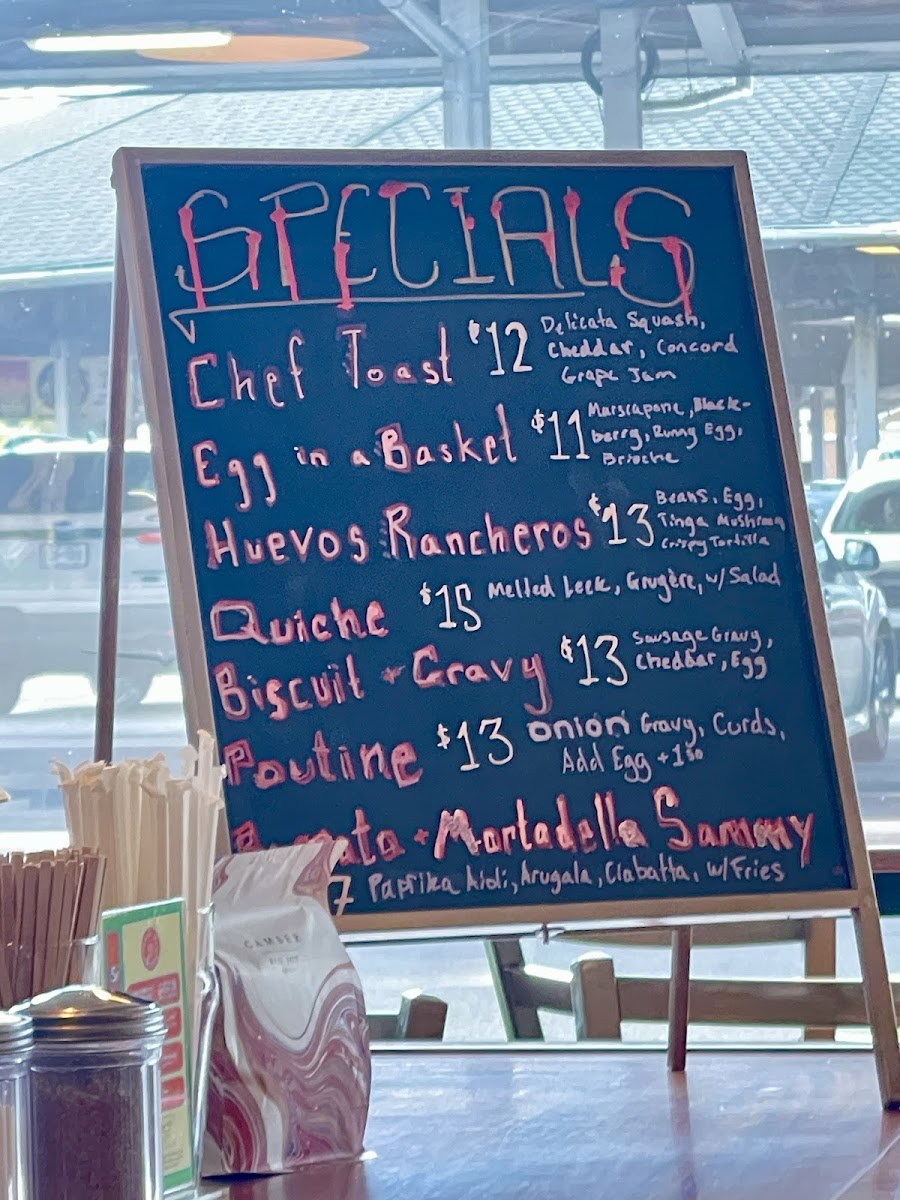 SPECIALS
Chef Toast $12 Delicata Squash,
Cheddar, Concord
Grape Jam
Egg in a Basket $11 Marscapone, Black-
berry, Runny Egg,
Brioche
Huevos Rancheros $13 Beans, Egg,
Tinga Mushroom
Crispy Tortilla
Quiche $15 Melted Leek, Grugère, w/ Salad
Biscuit + Gravy $13 Sausage Gravy,
Cheddar, Egg
Poutine $13 Onion Gravy, Curds,
Add Egg +1⁵⁰
+ Mortadella Sammy
7 Paprika Aioli, Arugala, Ciabatta, w/ Fries
CAMBER